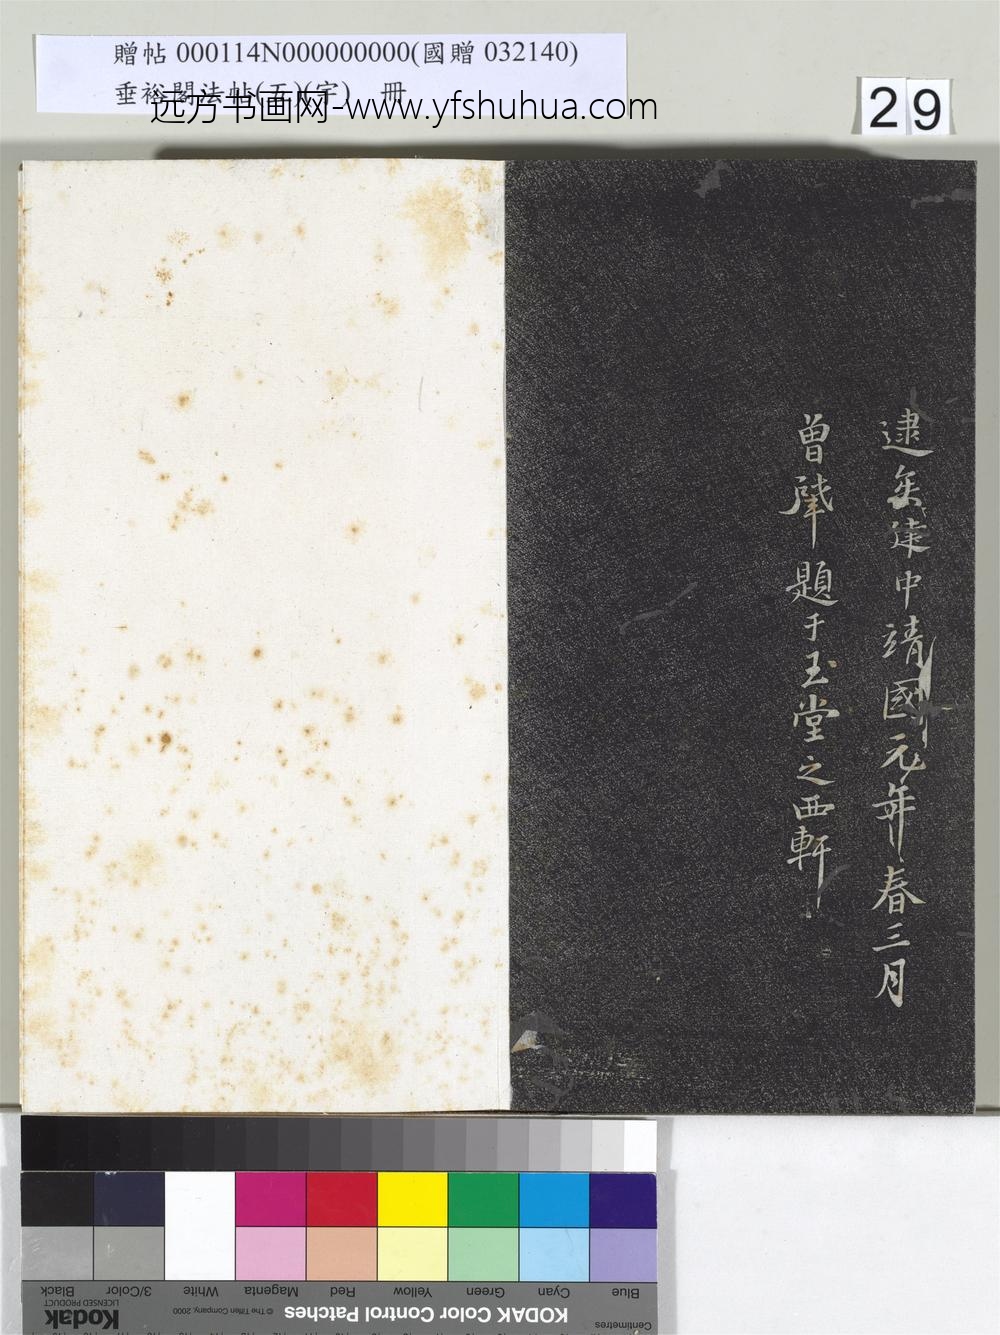 贈帖 000114N000000000(國贈 032140)
垂裕閣法帖(五)(字) 冊
远方书画网-www.yfshuhua.com
29
逮矣建中靖國元年春三月
曾肈題于玉堂之西軒
Blue Cyan Green Yellow Red Magenta White 3/Color Black
KODAK Color Control Patches
© The Tiffen Company, 2000
Kodak
LICENSED PRODUCT
Centimetres